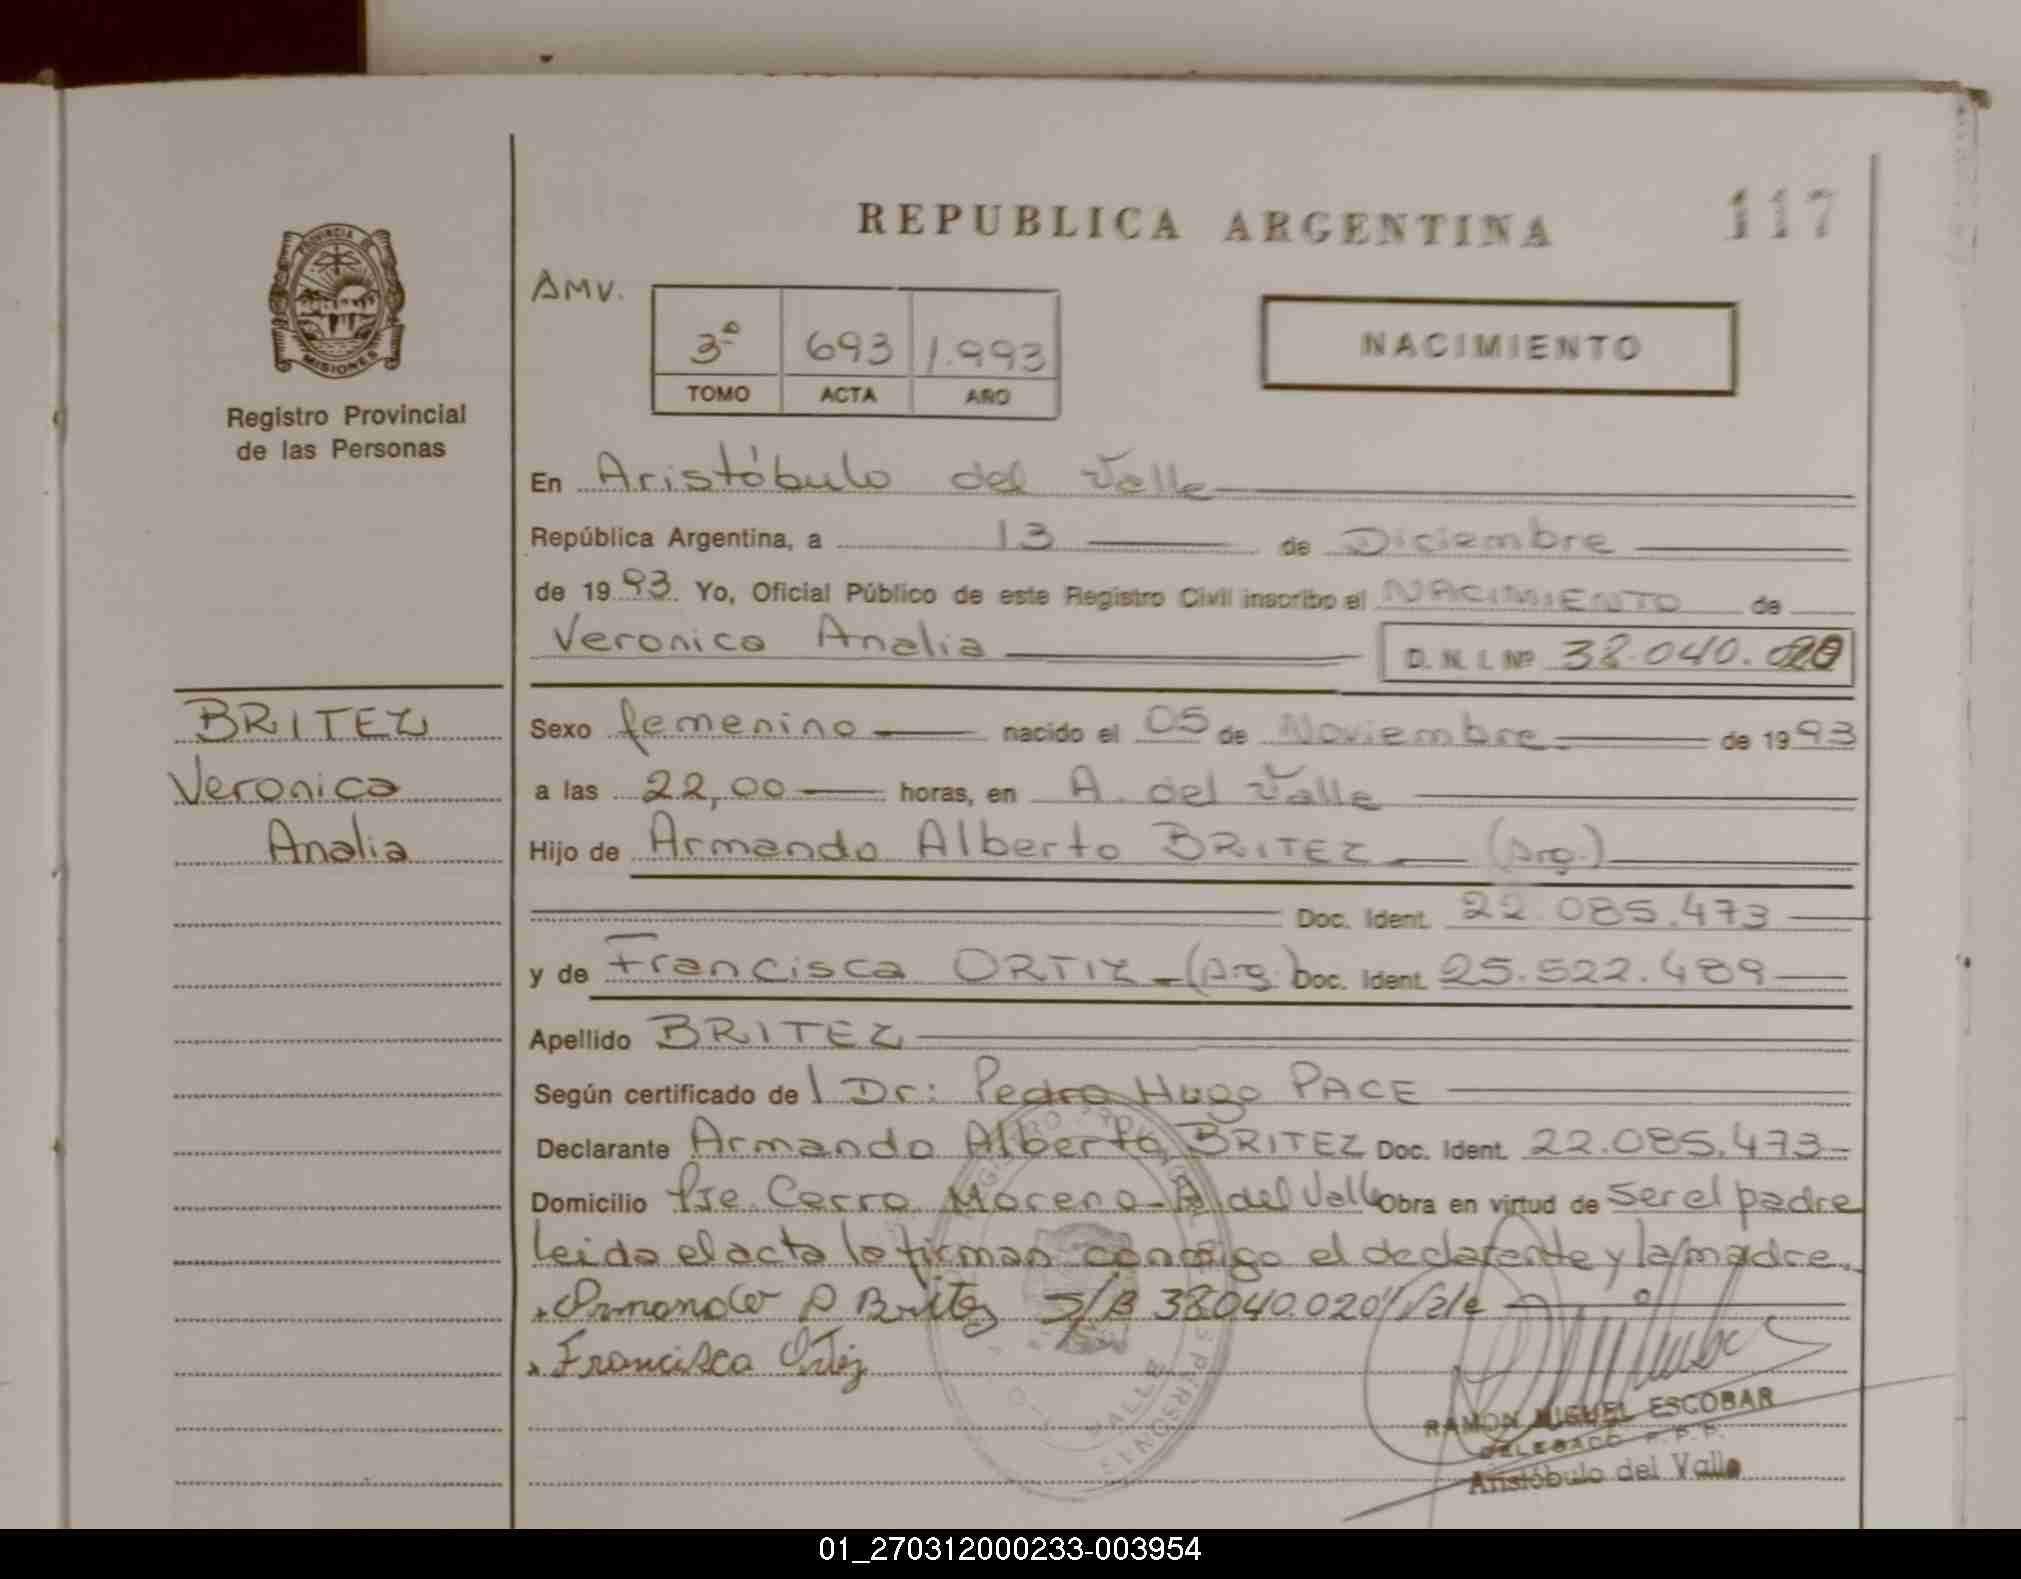 REPUBLICA ARGENTINA
117
PROVINCIA DE
MISIONES
Registro Provincial
de las Personas
AMV.
3º 693 1.993
TOMO ACTA AÑO
NACIMIENTO
En Aristóbulo del Valle
República Argentina, a 13 de Diciembre
de 1993. Yo, Oficial Público de este Registro Civil inscribo el NACIMIENTO de
Veronica Analia D. N. I. Nº 38.040.020
BRITEZ
Veronica
Analia
Sexo femenino nacido el 05 de Noviembre de 1993
a las 22,00 horas, en A. del Valle
Hijo de Armando Alberto BRITEZ (Arg.)
Doc. Ident. 22.085.473
y de Francisca ORTIZ - (Arg.) Doc. Ident. 25.522.489
Apellido BRITEZ
Según certificado de l Dr: Pedro Hugo PACE
Declarante Armando Alberto BRITEZ Doc. Ident. 22.085.473
Domicilio Pje. Cerro Moreno - A. del Valle Obra en virtud de ser el padre
Leida el acta la firman conmigo el declarante y la madre.
Armando A Britez S/B 38.040.020 Vale
Francisca Ortiz
RAMON MIGUEL ESCOBAR
DELEGADO R. P. P.
Aristóbulo del Valle
01_270312000233-003954